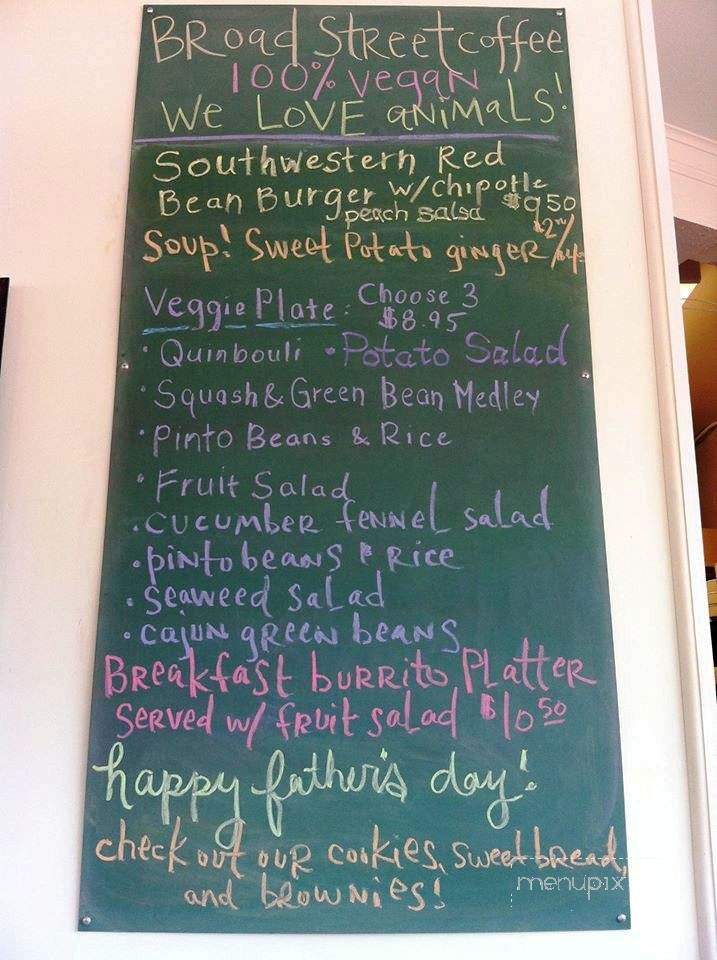 BRoad Street coffee
100% vegan
We LOVE aNiMaLS!
Southwestern Red
Bean Burger w/chipotle
peach salsa $9.50
Soup! Sweet Potato ginger
Veggie Plate: Choose 3
$8.95
• Quinbouli • Potato Salad
• Squash & Green Bean Medley
• Pinto Beans & Rice
• Fruit Salad
• cucumber fennel salad
• pinto beans & Rice
• seaweed salad
• cajun green beans
Breakfast burrito Platter
served w/ fruit salad $10.50
happy father's day!
check out our cookies, sweetbread,
and brownies!
menupix